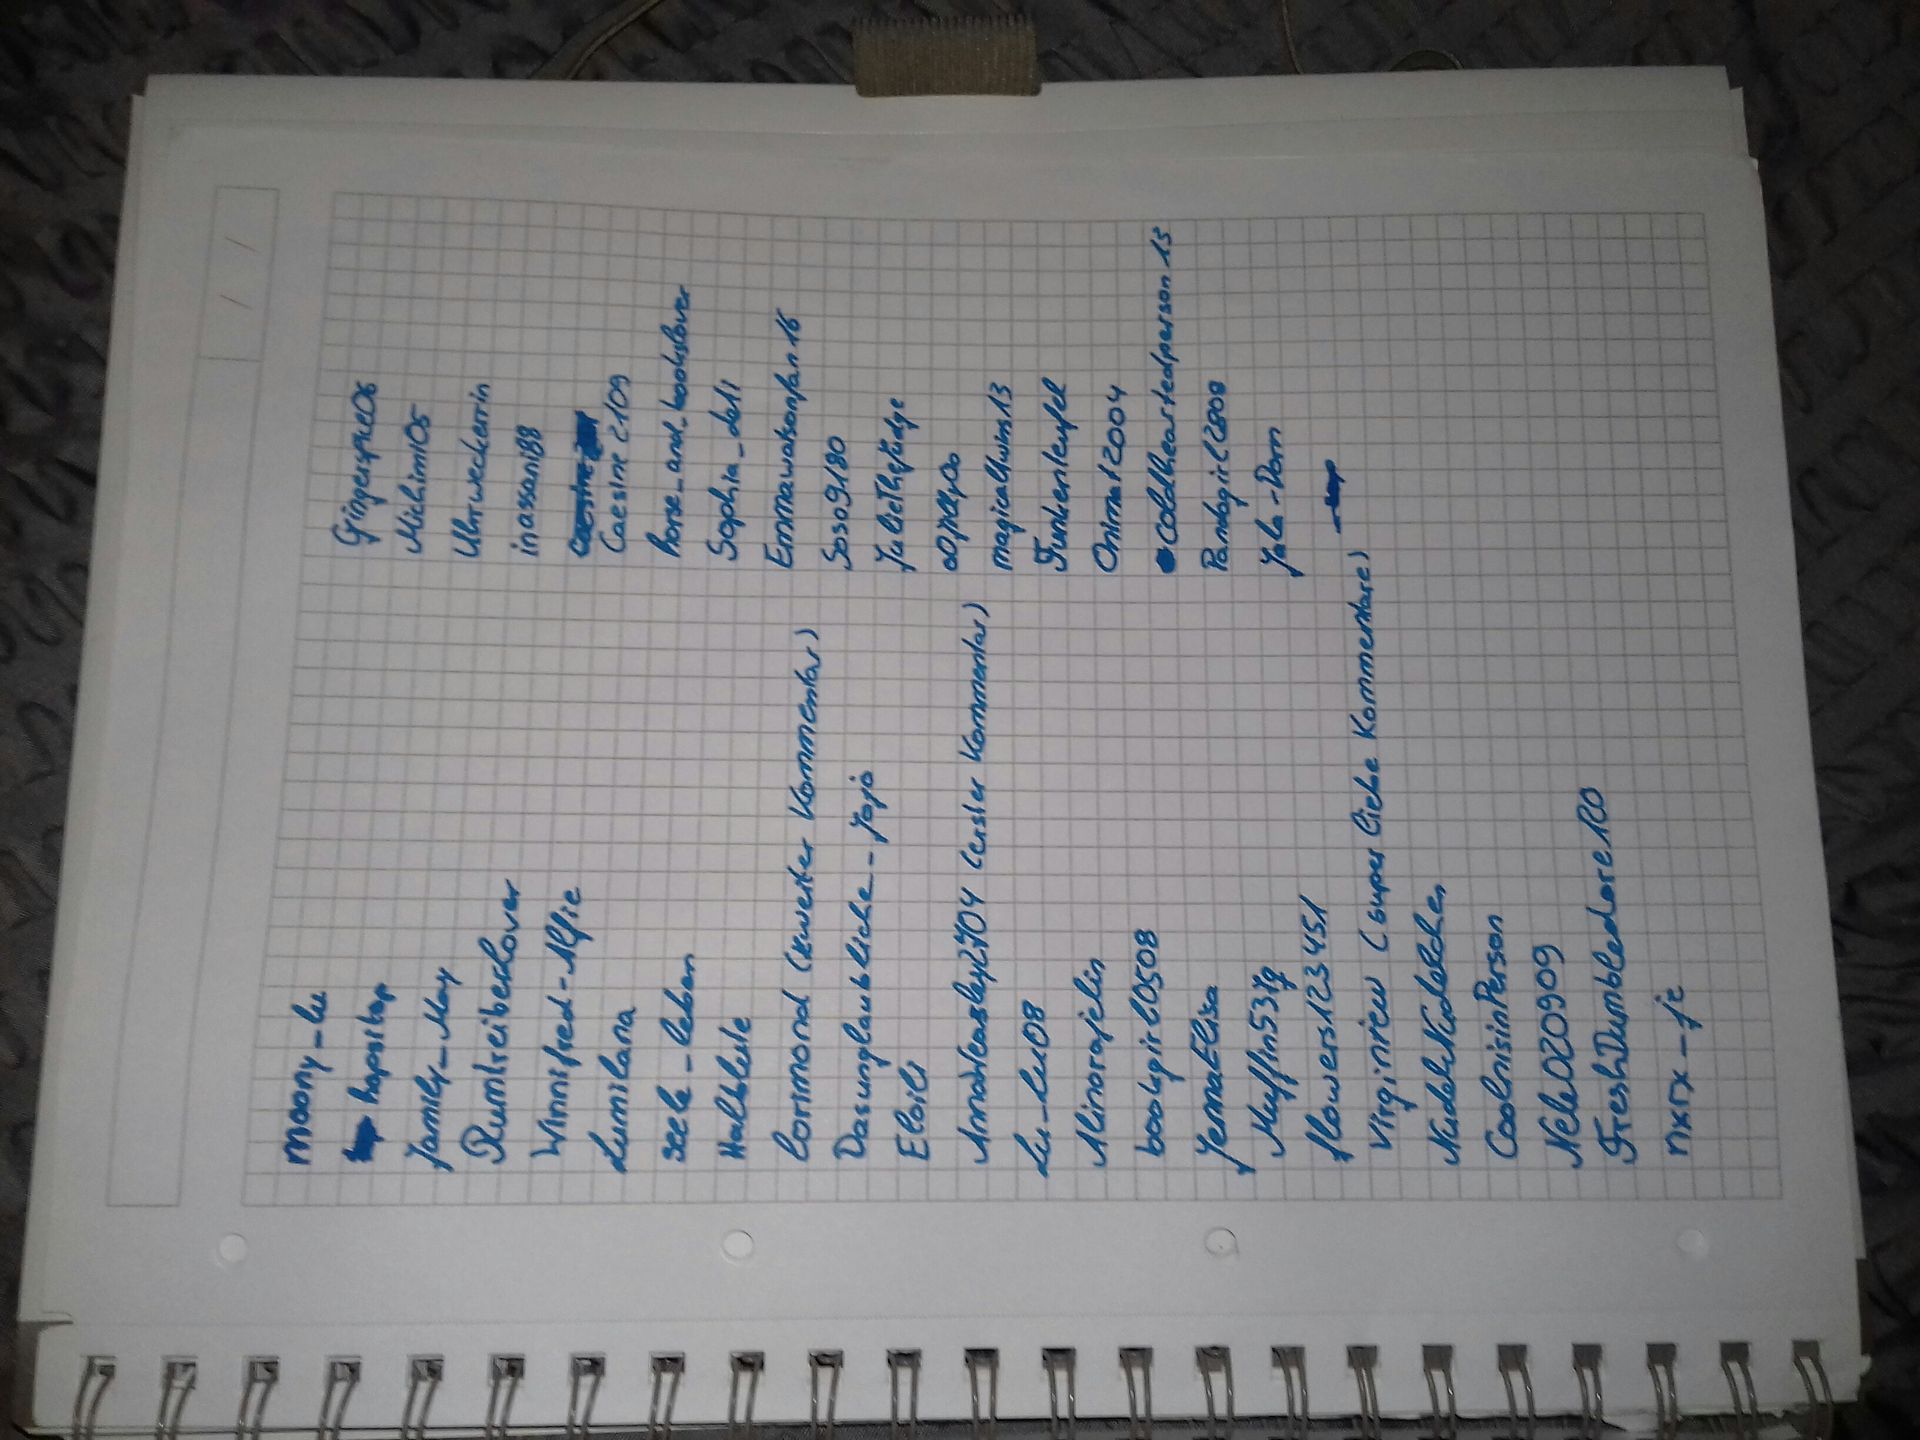 moony-lu
hapsitap
Jamily-May
Rumtreiberlover
Winnifred-Alfie
Lumilana
seele_leben
Halbblute
Corimond (zweiter Kommentar)
Dasunglaubliche_Jojo
Eloili
(erster Kommentar)
Lu-Lu08
Alinorajelin
bookgirl0508
JemaElisa
flowers123451
Virginriew (super liebe Kommentare)
NudelNudelchen
CoolnisinPerson
Nele020909
FreshDumbledore10
nxrx-fc
Michimi05
Uhrweckerrin
inassani98
Caesine2109
Rose_and_bookslover
Sophia_de11
Emmawatsonfan16
Soso9180
magicaltwins13
Funkenteufel
Onimat2004
Coldheartedperson15
Pandagirl2808
Jula-Dorn